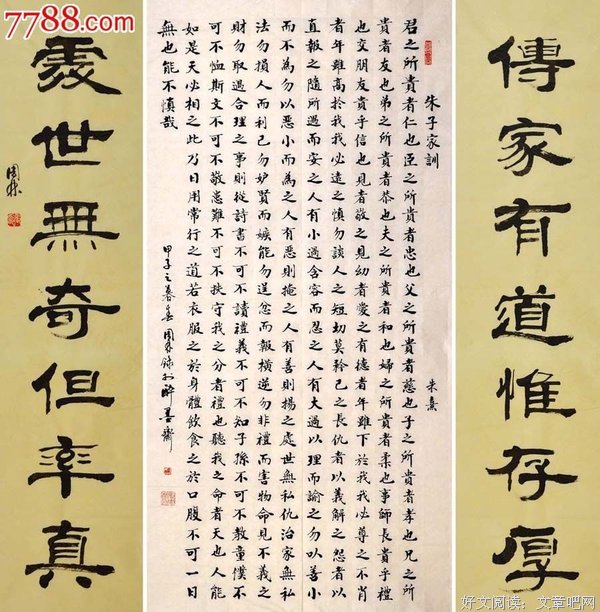 7788.com
傳家有道惟存厚
朱子家訓 朱熹
君之所貴者仁也臣之所貴者忠也父之所貴者慈也子之所貴者孝也兄之所
貴者友也弟之所貴者恭也夫之所貴者和也婦之所貴者柔也事師長貴乎禮
也交朋友貴乎信也見者敬之見幼者愛之有德者年雖下於我我必尊之不肖
者年雖高於我我必遠之慎勿談人之短切莫矜己之長仇者以義解之怨者以
直報之隨所遇而安之人有小過含容而忍之人有大過以理而諭之勿以善小
而不為勿以惡小而為之人有惡則掩之人有善則揚之處世無私仇治家無私
法勿損人而利己勿妒賢而嫉能勿逞忿而報橫逆勿非禮而害物命見不義之
財勿取遇合理之事則從詩書不可不讀禮義不可不知子孫不可不教童僕不
可不恤斯文不可不敬患難不可不扶守我之分者禮也聽我之命者天也人能
如是天必相之此乃日用常行之道若衣服之於身體飲食之於口腹不可一日
無也能不慎哉
甲子之春
處世無奇但率真
好文阅读：文章吧网